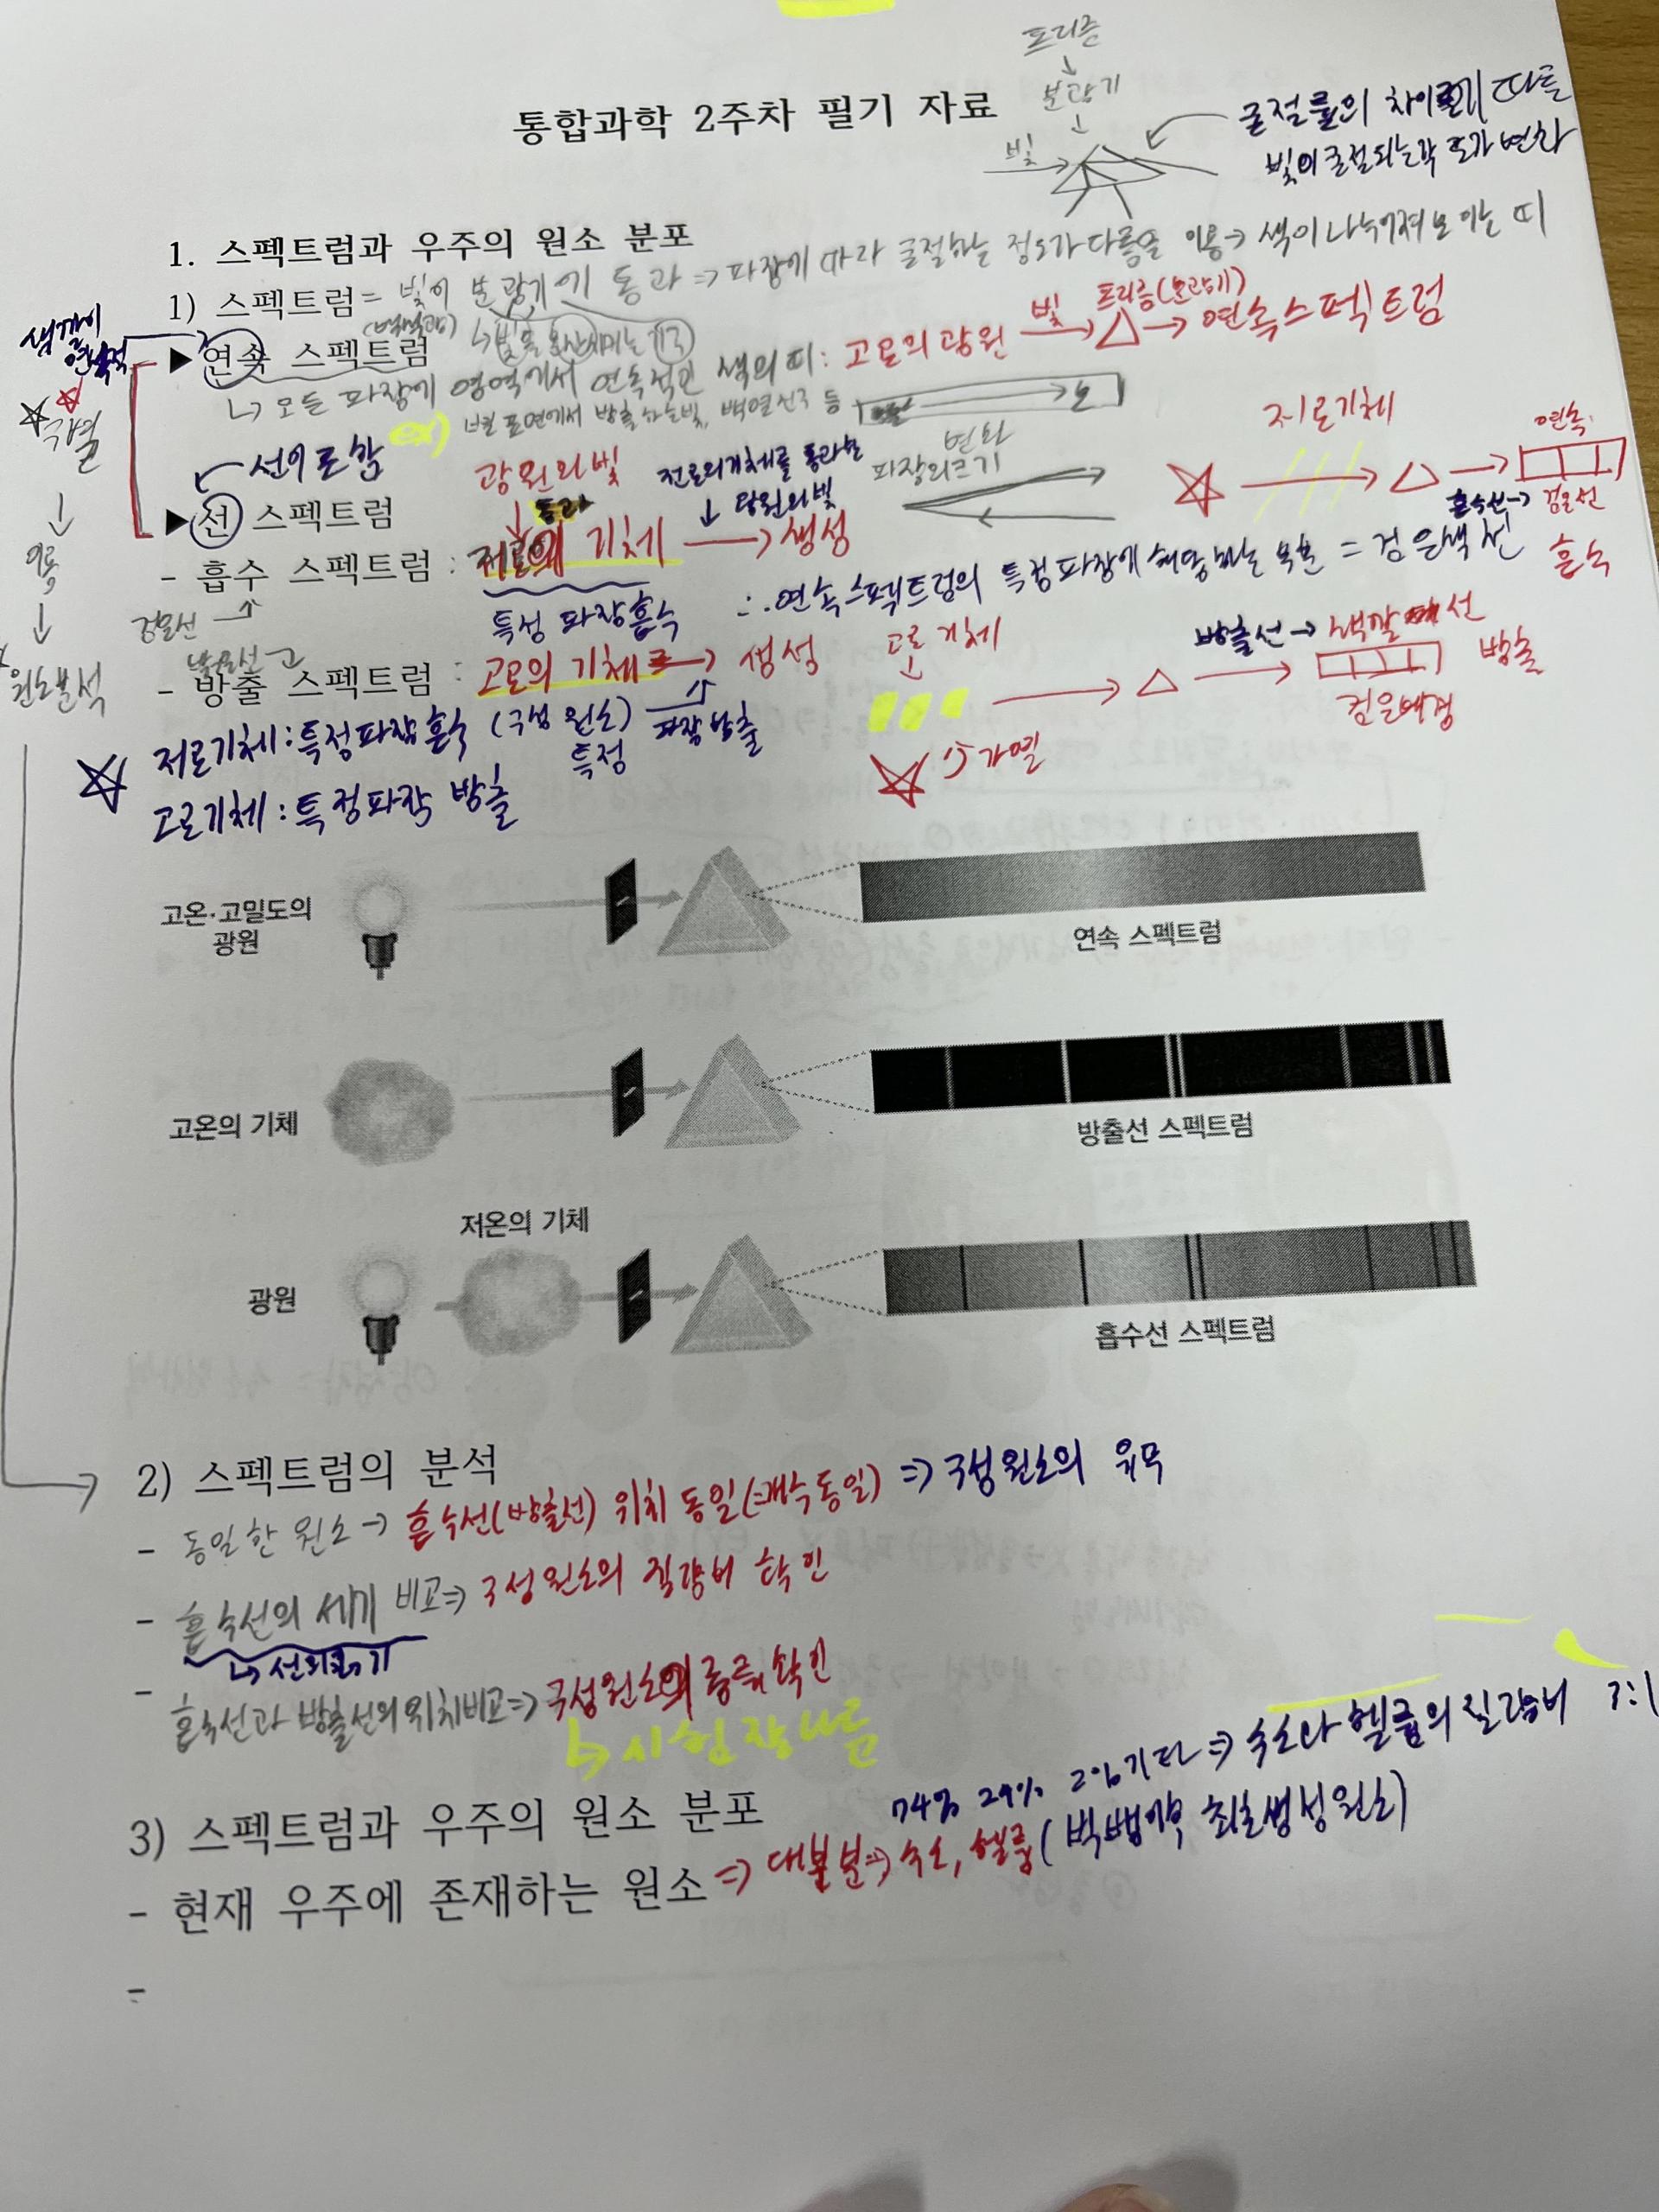 프리즘
↓
분광기
↓
빛
통합과학 2주차 필기 자료
굴절률의 차이 따른
빛이 굴절되는 각도가 변화
1. 스펙트럼과 우주의 원소 분포
1) 스펙트럼 = 빛이 분광기에 통과 ⇒ 파장에 따라 굴절하는 정도가 다름을 이용 → 색이 나누어져 보이는 띠
(백색광) ↳ 빛을 분산시키는 기구
색깔이
연속적
▶ 연속 스펙트럼
↳ 모든 파장에 영역에서 연속적인 색의 띠 : 고온의 광원 빛 → 프리즘(분광기) △ → 연속 스펙트럼
ex) 별 표면에서 방출하는 빛, 백열전구 등
선이 포함
▶ 선 스펙트럼
파장의 크기
변화
- 흡수 스펙트럼 : 저온의 기체 → 생성
광원의 빛
↓ 통과
저온의 기체를 통과한
↓ 광원의 빛
저온 기체
연속
흡수선 → 검은선
흡수
검은선
특정 파장 흡수 ∴ 연속 스펙트럼의 특정 파장에 해당하는 부분 = 검은색 선
- 방출 스펙트럼 : 고온의 기체 → 생성
고온 기체
↓
방출선 → 색깔 선
방출
검은 배경
가열
↓
이용
↓
원소분석
☆ 저온기체 : 특정파장 흡수 (구성 원소)
특정 파장 방출
고온기체 : 특정파장 방출
고온·고밀도의
광원
연속 스펙트럼
고온의 기체
방출선 스펙트럼
저온의 기체
광원
흡수선 스펙트럼
2) 스펙트럼의 분석
- 동일한 원소 → 흡수선(방출선) 위치 동일(=개수 동일) ⇒ 구성원소의 유무
- 흡수선의 세기 비교 ⇒ 구성원소의 질량비 확인
↳ 선의 굵기
- 흡수선과 방출선의 위치비교 ⇒ 구성원소의 종류 확인
↳ 시험 잘 나옴
3) 스펙트럼과 우주의 원소 분포
74% 24% 2% 기타 ⇒ 수소와 헬륨의 질량비 3:1
- 현재 우주에 존재하는 원소 ⇒ 대부분 ⇒ 수소, 헬륨 (빅뱅 이후 최초 생성 원소)
-